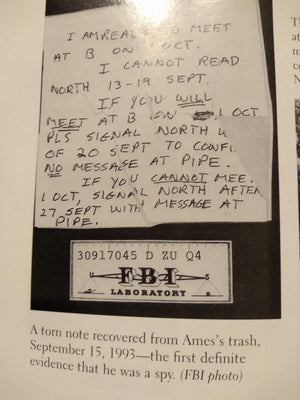 I AM READY TO MEET
AT B ON 1 OCT.
I CANNOT READ
NORTH 13-19 SEPT.
IF YOU WILL
MEET AT B ON 1 OCT.
PLS SIGNAL NORTH W
OF 20 SEPT TO CONFI
NO MESSAGE AT PIPE.
IF YOU CANNOT MEE
1 OCT, SIGNAL NORTH AFTER
27 SEPT WITH MESSAGE AT
PIPE.
30917045 D ZU Q4
FBI
LABORATORY
A torn note recovered from Ames's trash,
September 15, 1993—the first definite
evidence that he was a spy. (FBI photo)